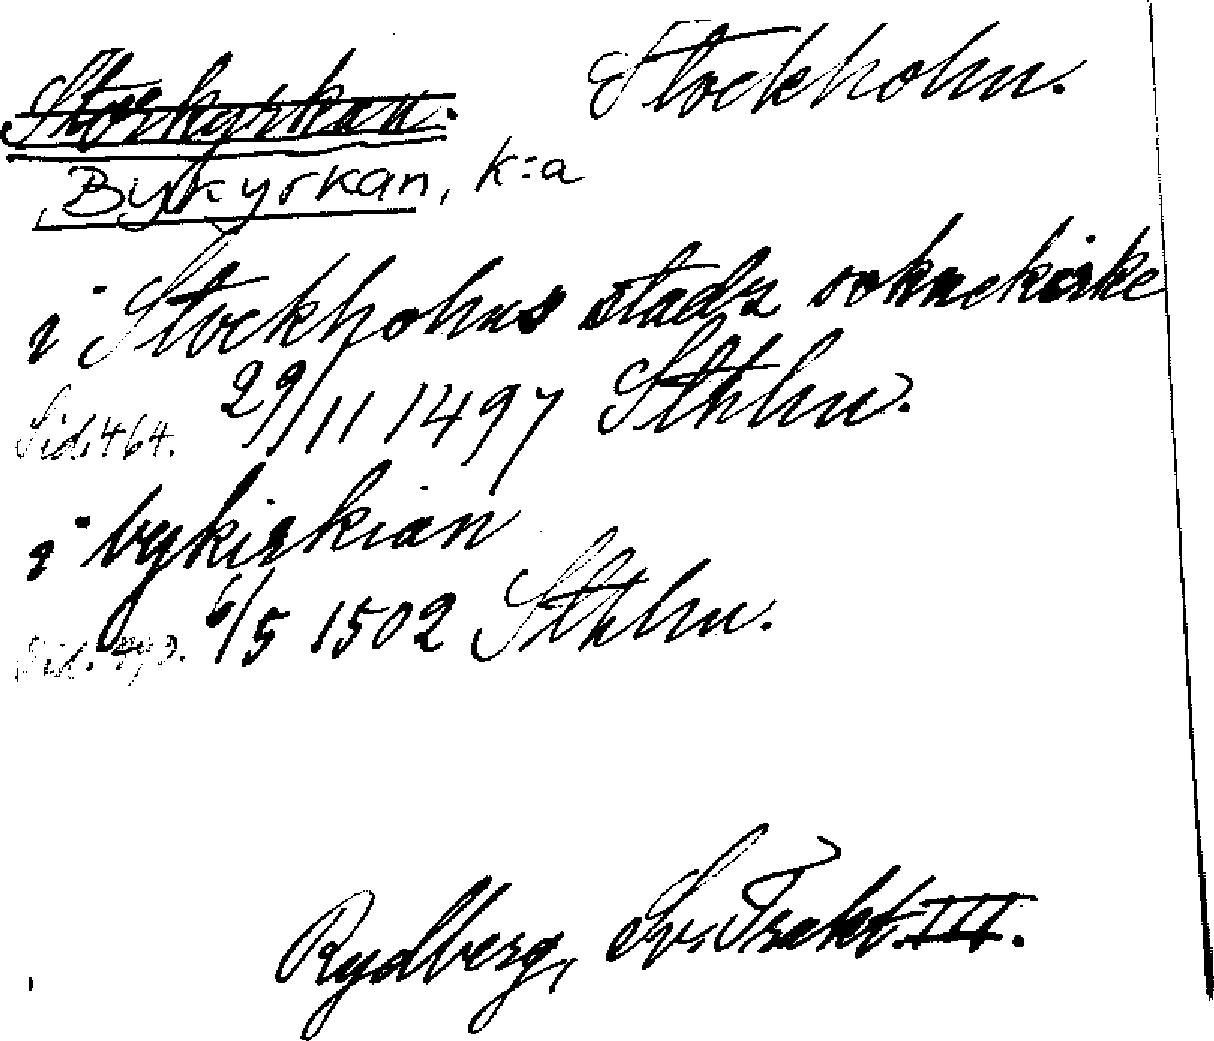 Storkyrkan. Stockholm.
Bykyrkan, k:a
i Stockholms stadz soknekirke
Sid. 464. 29/11 1497 Sthlm.
i bykirkian
Sid. 6/5 1502 Sthlm.
Rydberg, Sv. Trakt. III.